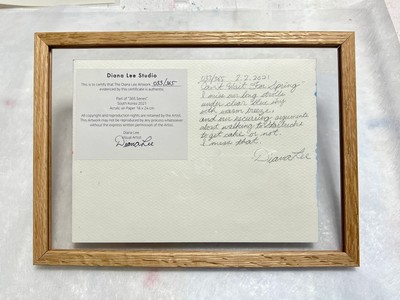 Diana Lee Studio
This is to certify that The Diana Lee Artwork, 053/365
evidenced by this certificate is authentic.
Part of "365 Series"
South Korea 2021
Acrylic on Paper 18 x 26 cm
All copyright and reproduction rights are retained by the Artist.
This artwork may not be reproduced by any process whatsoever
without the express written permission of the Artist.
Diana Lee
Visual Artist
Diana Lee
053/365 2.7.2021
Can't Wait For Spring
I miss our long strolls
under clear blue sky
with warm breeze,
and our recurring arguments
about walking to Starbucks
to get cake or not.
I miss that.
Diana Lee